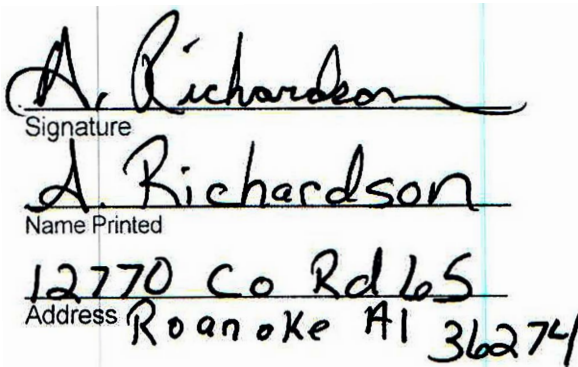 A. Richardson
Signature
A. Richardson
Name Printed
12770 Co Rd 65
Address Roanoke Al 36274